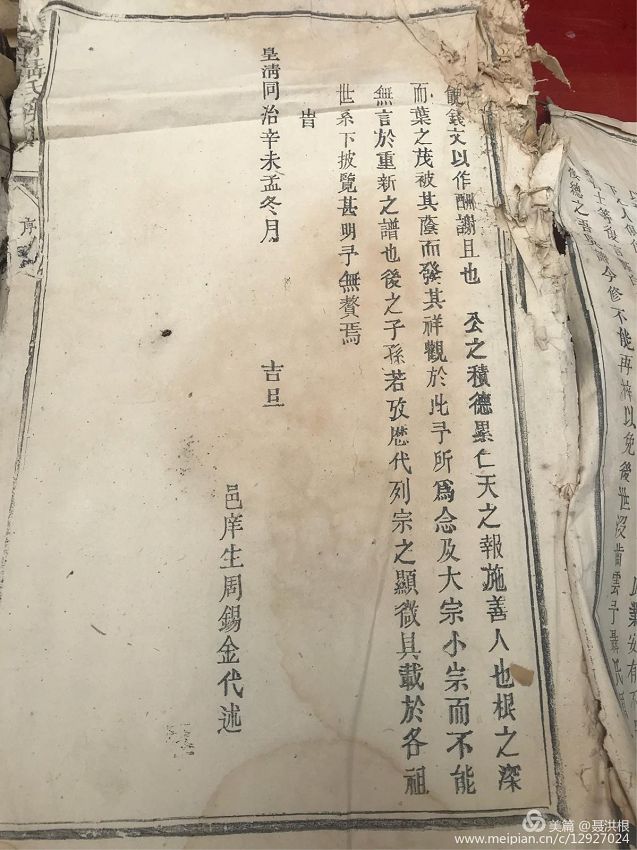 飽錢文以作酬謝且也 公之積德累仁天之報施善人也根之深
而葉之茂被其蔭而發其祥觀於此予所為念及大宗小宗而不能
無言於重新之譜也後之子孫若攷歷代列宗之顯微具載於各祖
世系下披覽甚明予無贅焉
旹
皇清同治辛未孟冬月 吉旦
邑庠生周錫金代述
序
今修不能再湔以免後世沒
德之
美篇 @聶洪根
www.meipian.cn/c/12927024